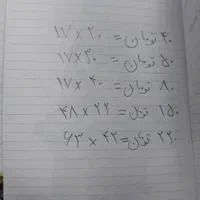 ۴۰ تومان = ۱۷×۲۰
۵۰ تومان = ۱۷×۳۰
۸۰ تومان = ۱۷×۴۰
۱۵۰ تومان = ۴۸×۲۲
۲۲۰ تومان = ۶۳×۴۳